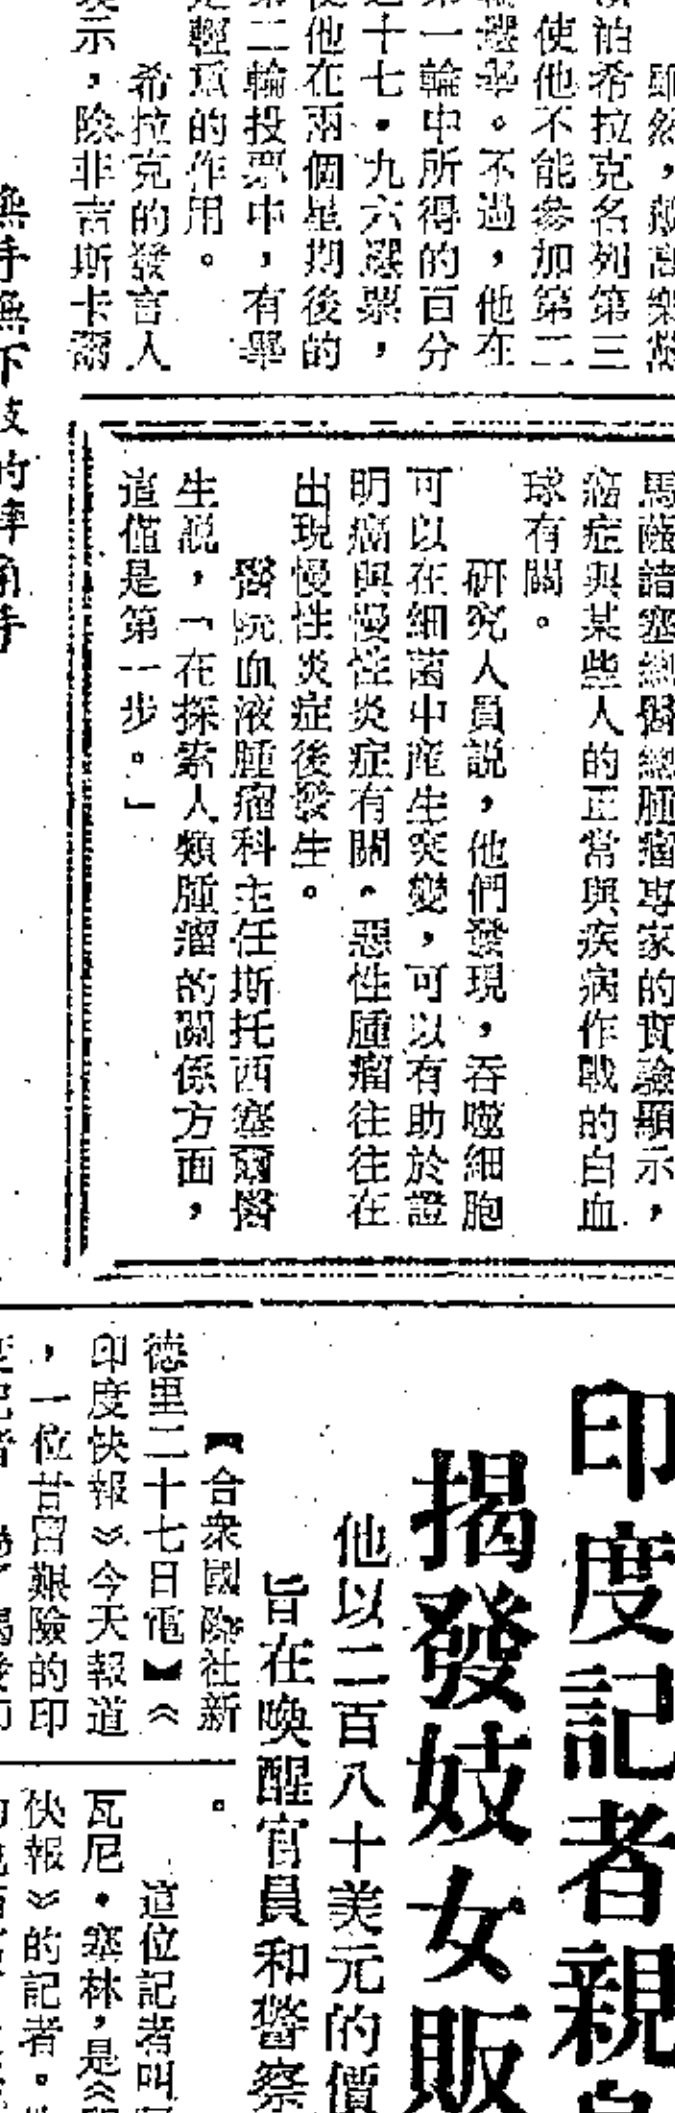 使他不能參加第二
輪選舉。不過，他在
第一輪中所得的百分
之十七·九六選票，
使他在兩個星期後的
第二輪投票中，有舉
足輕重的作用。
希拉克的發言人
表示，除非吉斯卡爾
馬薩諸塞總醫總腫瘤專家的實驗顯示，
癌症與某些人的正常與疾病作戰的白血
球有關。
研究人員說，他們發現，吞噬細胞
可以在細菌中產生突變，可以有助於證
明癌與慢性炎症有關。惡性腫瘤往往在
出現慢性炎症後發生。
醫院血液腫瘤科主任斯托西塞爾醫
生說，「在探索人類腫瘤的關係方面，
這僅是第一步。」
印度記者親
揭發妓女販
他以二百八十美元的價
旨在喚醒官員和警察
【合衆國際社新
德里二十七日電】《
印度快報》今天報道
，一位甘冒艱險的印
。
這位記者叫
瓦尼·塞林，是《
快報》的記者。